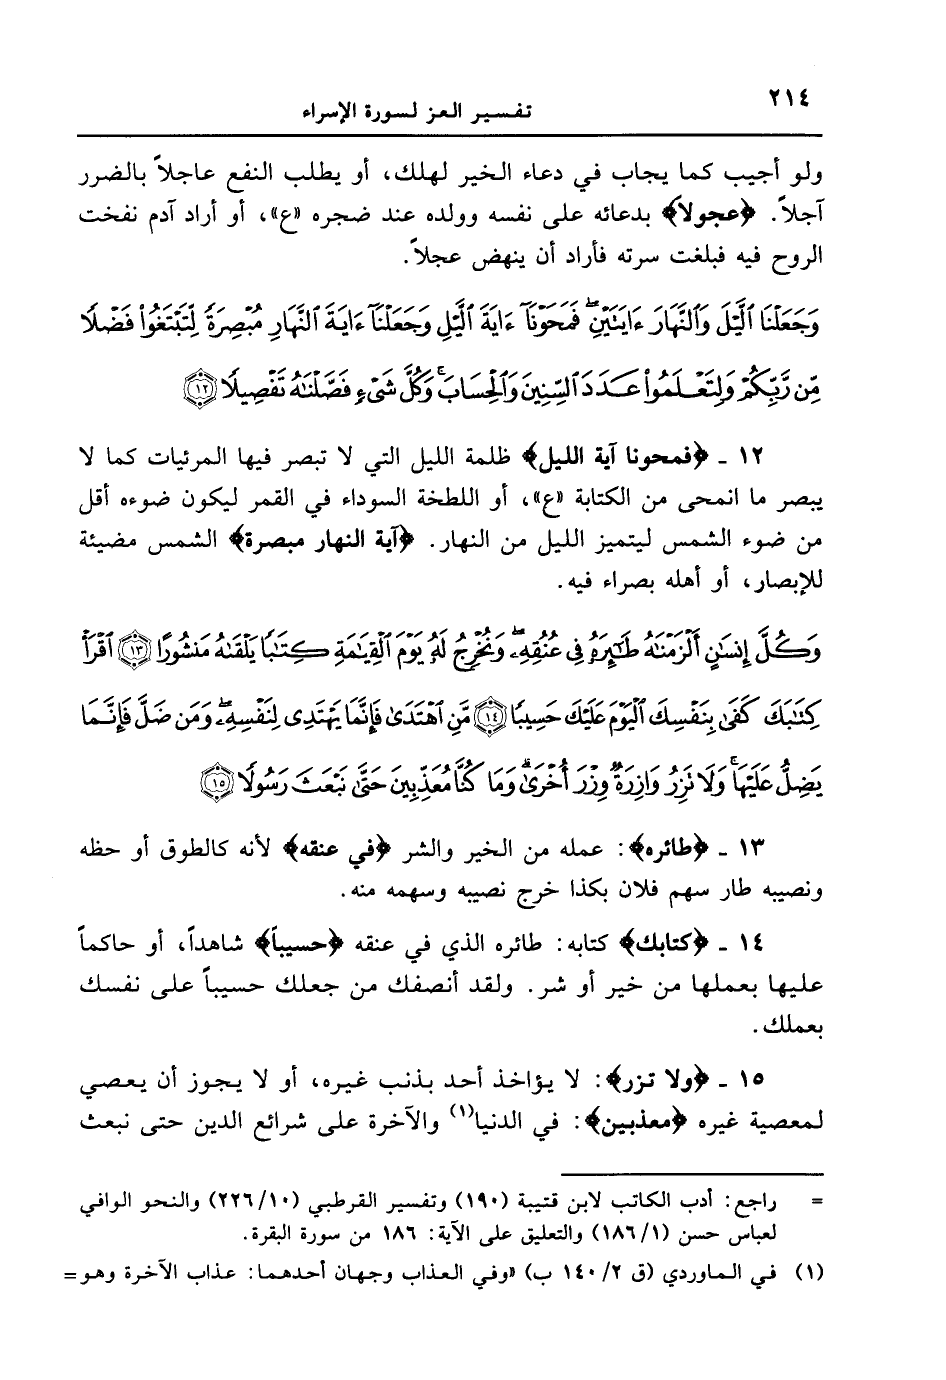 ٢١٤
تفسير العز لسورة الإسراء
ولو أجيب كما يجاب في دعاء الخير لهلك، أو يطلب النفع عاجلاً بالضرر
آجلاً. ﴿عجولاً﴾ بدعائه على نفسه وولده عند ضجره «ع»، أو أراد آدم نفخت
الروح فيه فبلغت سرته فأراد أن ينهض عجلاً.
وَجَعَلْنَا ٱلَّيْلَ وَٱلنَّهَارَ ءَايَتَيْنِ ۖ فَمَحَوْنَآ ءَايَةَ ٱلَّيْلِ وَجَعَلْنَآ ءَايَةَ ٱلنَّهَارِ مُبْصِرَةً لِّتَبْتَغُوا۟ فَضْلًا
مِّن رَّبِّكُمْ وَلِتَعْلَمُوا۟ عَدَدَ ٱلسِّنِينَ وَٱلْحِسَابَ ۚ وَكُلَّ شَىْءٍ فَصَّلْنَٰهُ تَفْصِيلًا ١٢
١٢ ـ ﴿فمحونا آية الليل﴾ ظلمة الليل التي لا تبصر فيها المرئيات كما لا
يبصر ما انمحى من الكتابة «ع»، أو اللطخة السوداء في القمر ليكون ضوءه أقل
من ضوء الشمس ليتميز الليل من النهار. ﴿آية النهار مبصرة﴾ الشمس مضيئة
للإبصار، أو أهله بصراء فيه.
وَكُلَّ إِنسَٰنٍ أَلْزَمْنَٰهُ طَٰٓئِرَهُۥ فِى عُنُقِهِۦ ۖ وَنُخْرِجُ لَهُۥ يَوْمَ ٱلْقِيَٰمَةِ كِتَٰبًا يَلْقَىٰهُ مَنشُورًا ١٣ ٱقْرَأْ
كِتَٰبَكَ كَفَىٰ بِنَفْسِكَ ٱلْيَوْمَ عَلَيْكَ حَسِيبًا ١٤ مَّنِ ٱهْتَدَىٰ فَإِنَّمَا يَهْتَدِى لِنَفْسِهِۦ ۖ وَمَن ضَلَّ فَإِنَّمَا
يَضِلُّ عَلَيْهَا ۚ وَلَا تَزِرُ وَازِرَةٌ وِزْرَ أُخْرَىٰ ۗ وَمَا كُنَّا مُعَذِّبِينَ حَتَّىٰ نَبْعَثَ رَسُولًا ١٥
١٣ ـ ﴿طائره﴾: عمله من الخير والشر ﴿في عنقه﴾ لأنه كالطوق أو حظه
ونصيبه طار سهم فلان بكذا خرج نصيبه وسهمه منه.
١٤ ـ ﴿كتابك﴾ كتابه: طائره الذي في عنقه ﴿حسيباً﴾ شاهداً، أو حاكماً
عليها بعملها من خير أو شر. ولقد أنصفك من جعلك حسيباً على نفسك
بعملك.
١٥ ـ ﴿ولا تزر﴾: لا يؤاخذ أحد بذنب غيره، أو لا يجوز أن يعصي
لمعصية غيره ﴿معذبين﴾: في الدنيا(١) والآخرة على شرائع الدين حتى نبعث
= راجع: أدب الكاتب لابن قتيبة (١٩٠) وتفسير القرطبي (٢٢٦/١٠) والنحو الوافي
لعباس حسن (١٨٦/١) والتعليق على الآية: ١٨٦ من سورة البقرة.
(١) في الماوردي (ق ١٤٠/٢ ب) «وفي العذاب وجهان أحدهما: عذاب الآخرة وهو=